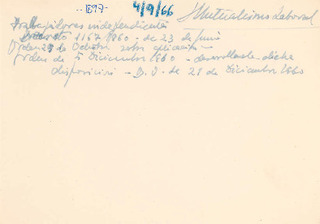 1597 4/9/66 Mutualismo Laboral
Trabajadores independientes
Decreto 1167/960 - de 23 de Junio
Orden de Octubre sobre
Orden de 5 Diciembre 1960 - desarrollando dicha
disposición - B. O. de 21 de Diciembre 1960